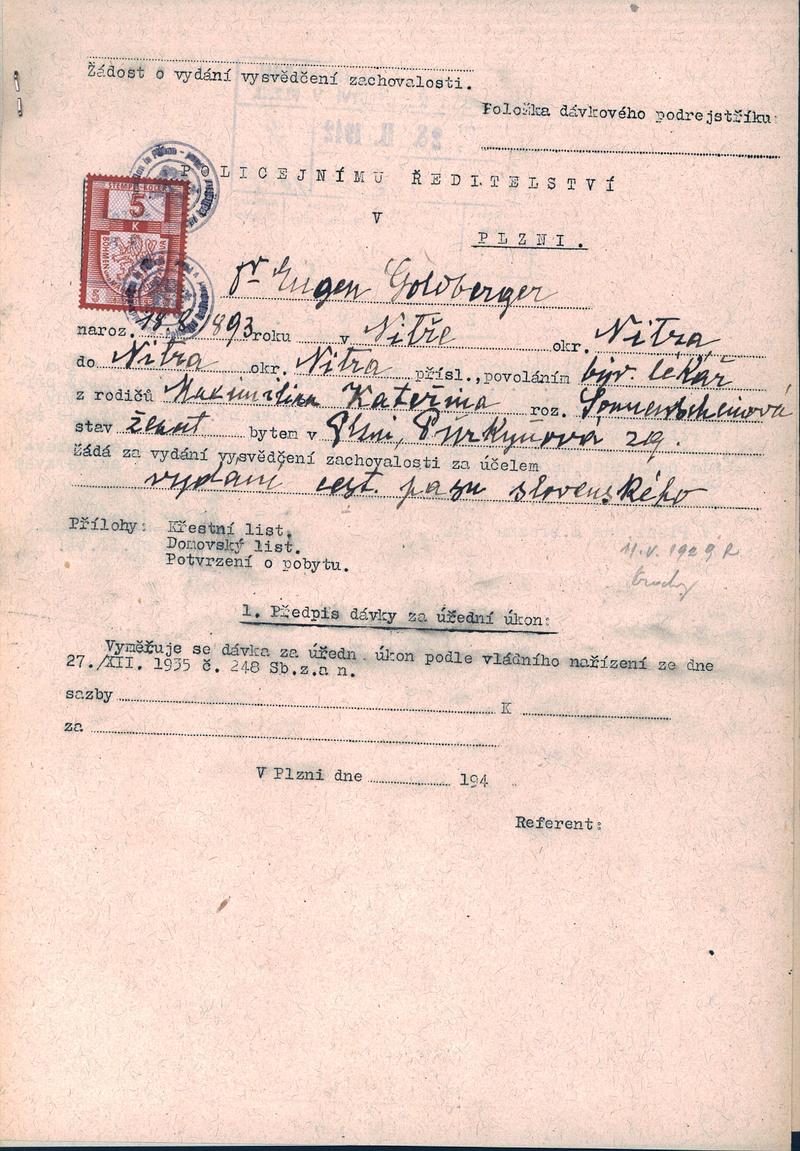 Žádost o vydání vysvědčení zachovalosti.
Položka dávkového podrejstříku:
POLICEJNÍMU ŘEDITELSTVÍ
V
PLZNI.
STEMPEL-KOLEK
5
K
BÖHMEN
Dr Eugen Goldberger
naroz. 18.8. 893 roku v Nitře okr. Nitra
do Nitra okr. Nitra přísl., povoláním býv. lékař
z rodičů Maximilian Kateřina roz. Sonnenscheinová
stav ženat bytem v Plzni, Purkyňova 29.
Žádá za vydání vysvědčení zachovalosti za účelem
vydání cest. pasu slovenského
Přílohy: Křestní list.
Domovský list.
Potvrzení o pobytu.
11.V. 1929
1. Předpis dávky za úřední úkon:
Vyměřuje se dávka za úředn. úkon podle vládního nařízení ze dne
27./XII. 1935 č. 248 Sb.z.a n.
sazby K
za
V Plzni dne 194
Referent: